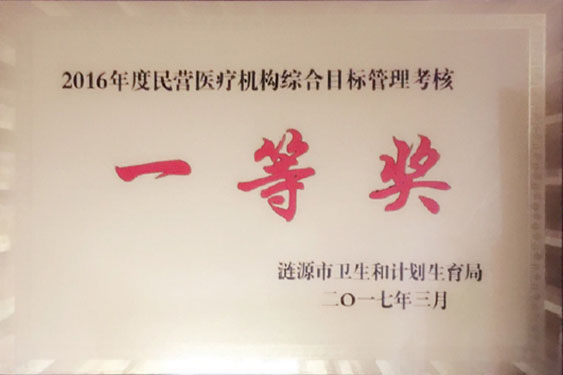 2016年度民营医疗机构综合目标管理考核
一等奖
涟源市卫生和计划生育局
二〇一七年三月